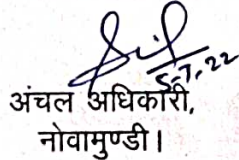 5-7-22
अंचल अधिकारी,
नोवामुण्डी।